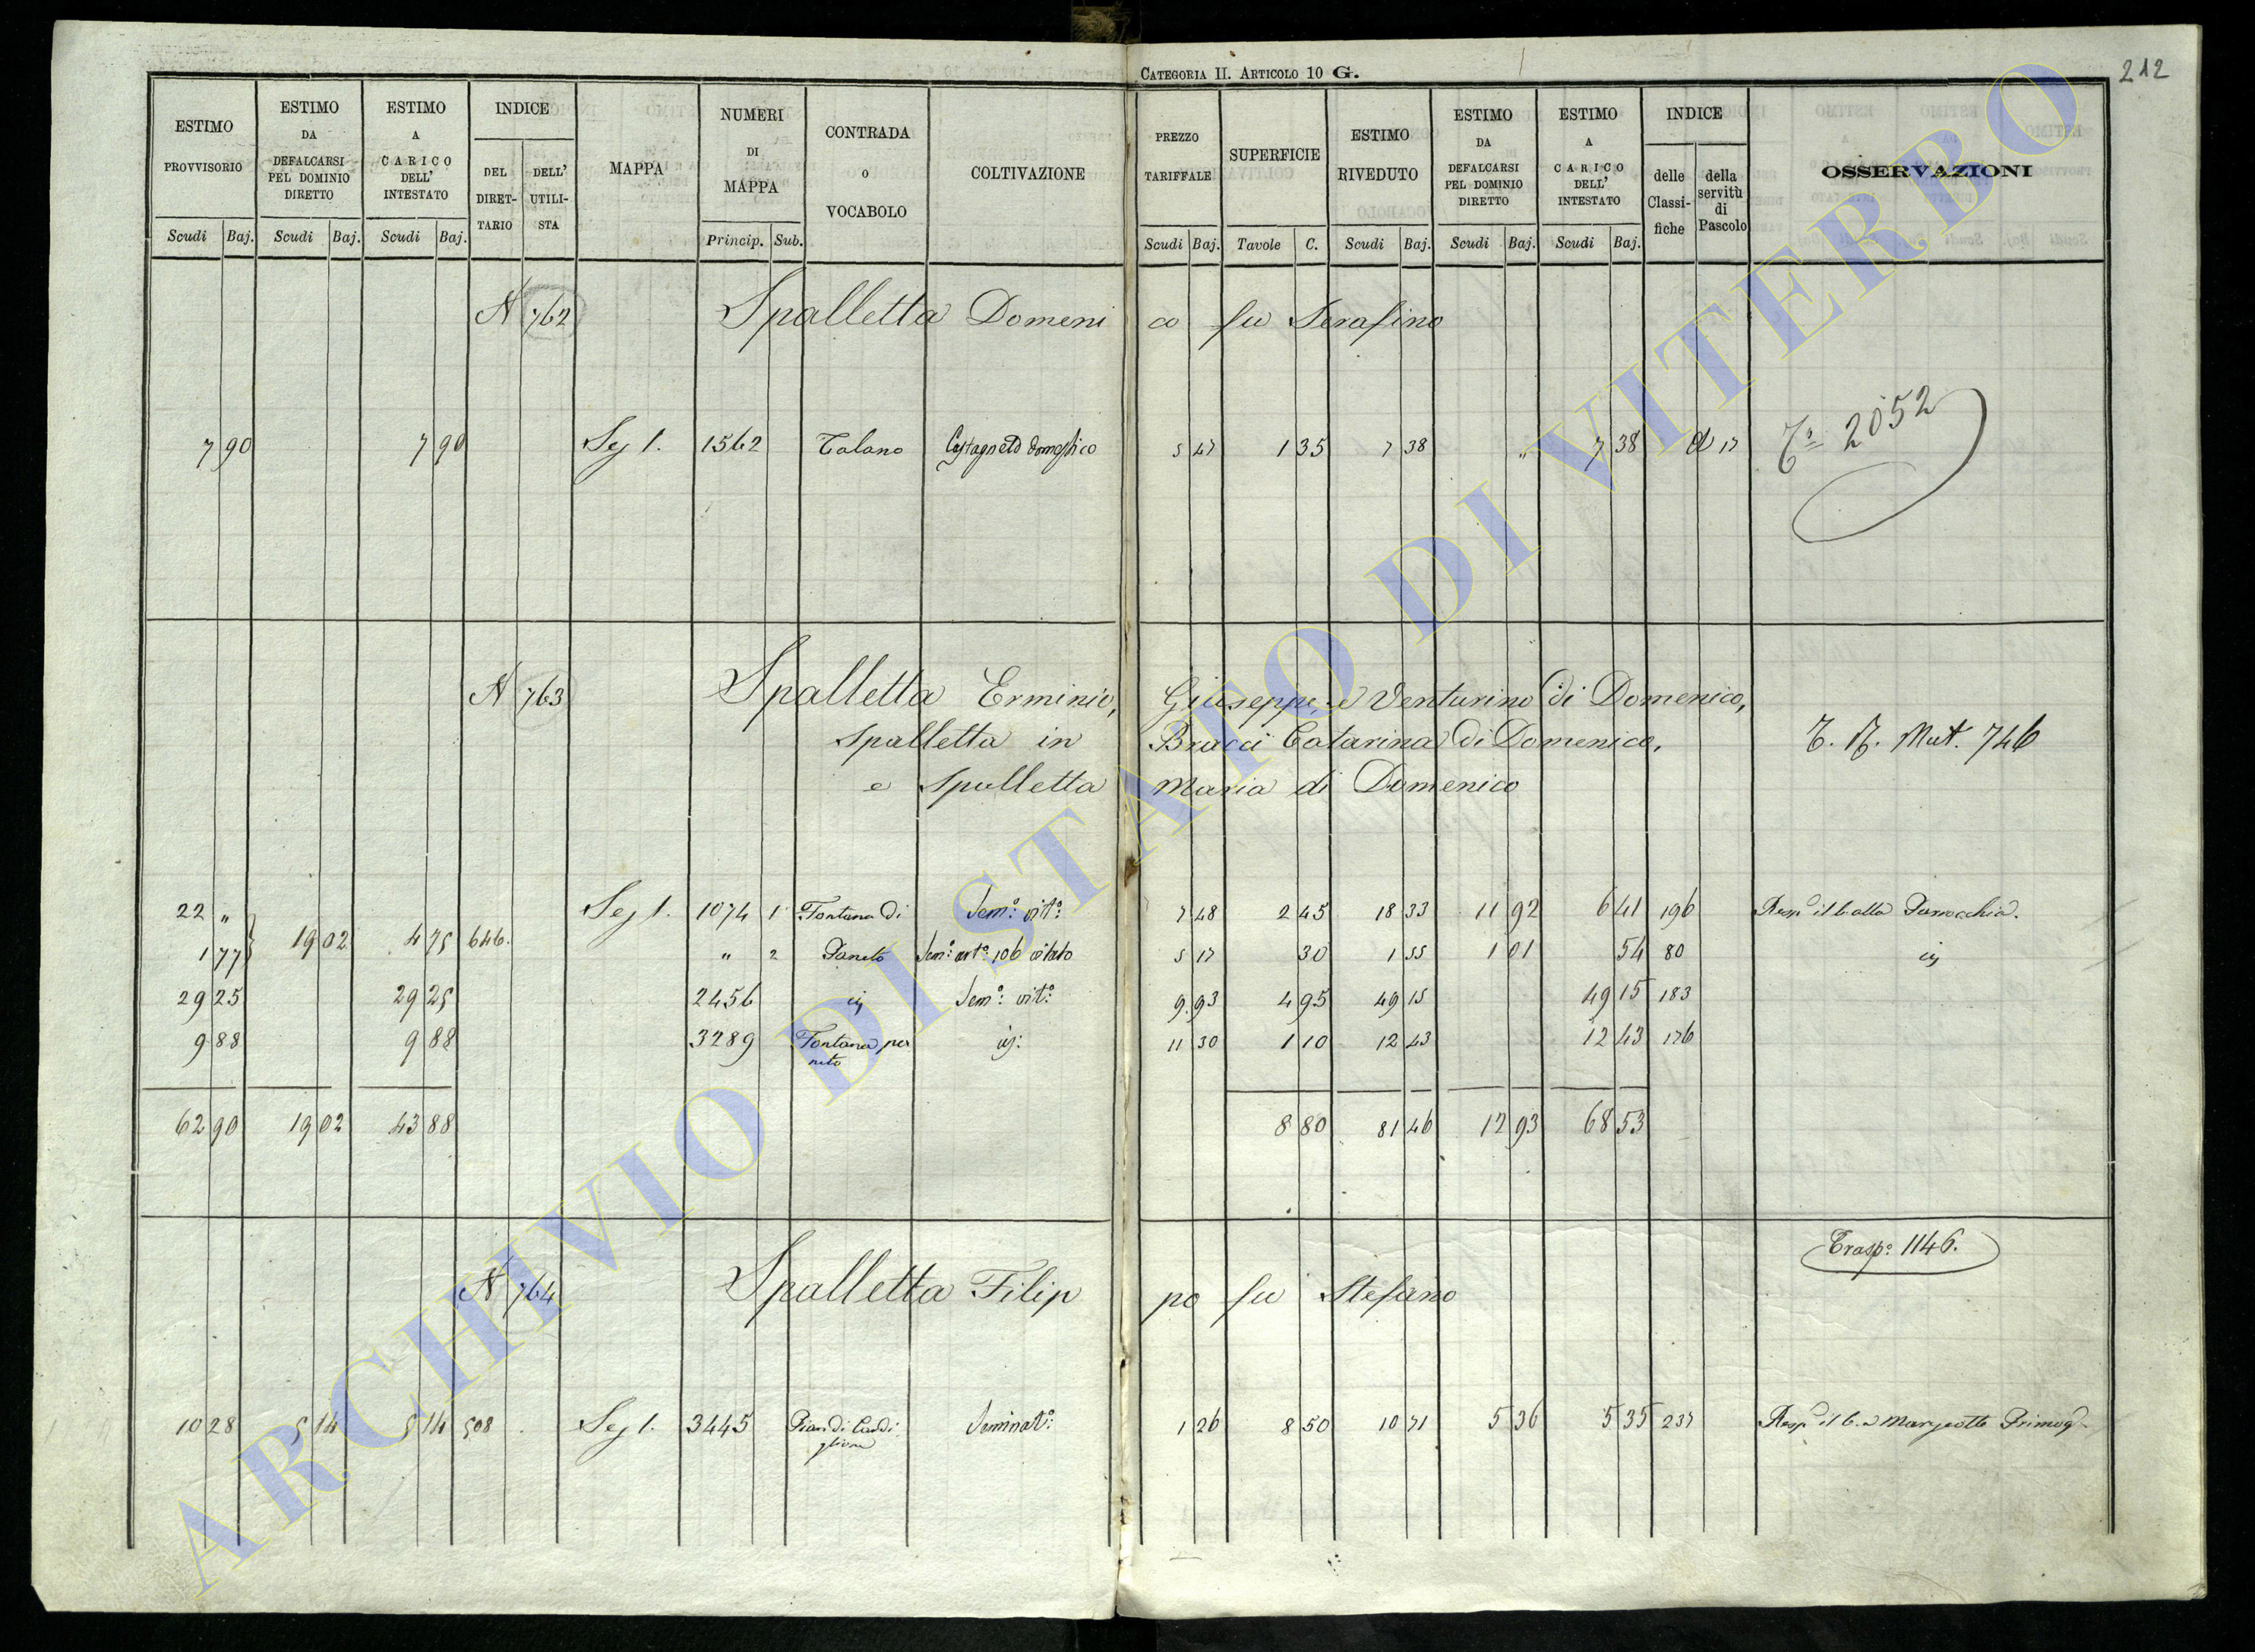 CATEGORIA II. ARTICOLO 10 G.
212
ESTIMO PROVVISORIO Scudi Baj.
ESTIMO DA DEFALCARSI PEL DOMINIO DIRETTO Scudi Baj.
ESTIMO A CARICO DELL' INTESTATO Scudi Baj.
INDICE DEL DIRETTARIO DELL' UTILISTA
MAPPA
NUMERI DI MAPPA Princip. Sub.
CONTRADA O VOCABOLO
COLTIVAZIONE
PREZZO TARIFFALE Scudi Baj.
SUPERFICIE Tavole C.
ESTIMO RIVEDUTO Scudi Baj.
ESTIMO DA DEFALCARSI PEL DOMINIO DIRETTO Scudi Baj.
ESTIMO A CARICO DELL' INTESTATO Scudi Baj.
INDICE delle Classifiche della servitù di Pascolo
OSSERVAZIONI
N 762 Spalletta Domenico fu Serafino
2052
7 90 7 90 Sez 1. 1562 Talano Castagneto domestico 5 47 1 35 7 38 „ 7 38 17
N 763 Spalletta Erminio, Giuseppe, e Venturino di Domenico,
Spalletta in Bracci Catarina di Domenico, T. N. Mut. 746
e Spalletta Maria di Domenico
22 „ Sez 1. 1074 1 Fontana di Sem.º vit.º 7 48 2 45 18 33 11 92 6 41 196 Resp il b alla Parrocchia.
1 77 19 02 4 75 646. „ 2 Paneto Sem.º vit.º 106 30 1 55 1 01 54 80
29 25 29 25 2456 Sem.º vit.º 9.93 4 95 49 15 49 15 183
9 88 9 88 3289 Fontana paneto 11 30 1 10 12 43 12 43 176
62 90 19 02 43 88 8 80 81 46 12 93 68 53
Trasp.º 1146.
N 764 Spalletta Filippo fu Stefano
10 28 5 14 5 14 508 Sez 1. 3445 Pian di Seminat.º 1 26 8 50 10 71 5 36 5 35 237 Resp
ARCHIVIO DI STATO DI VITERBO